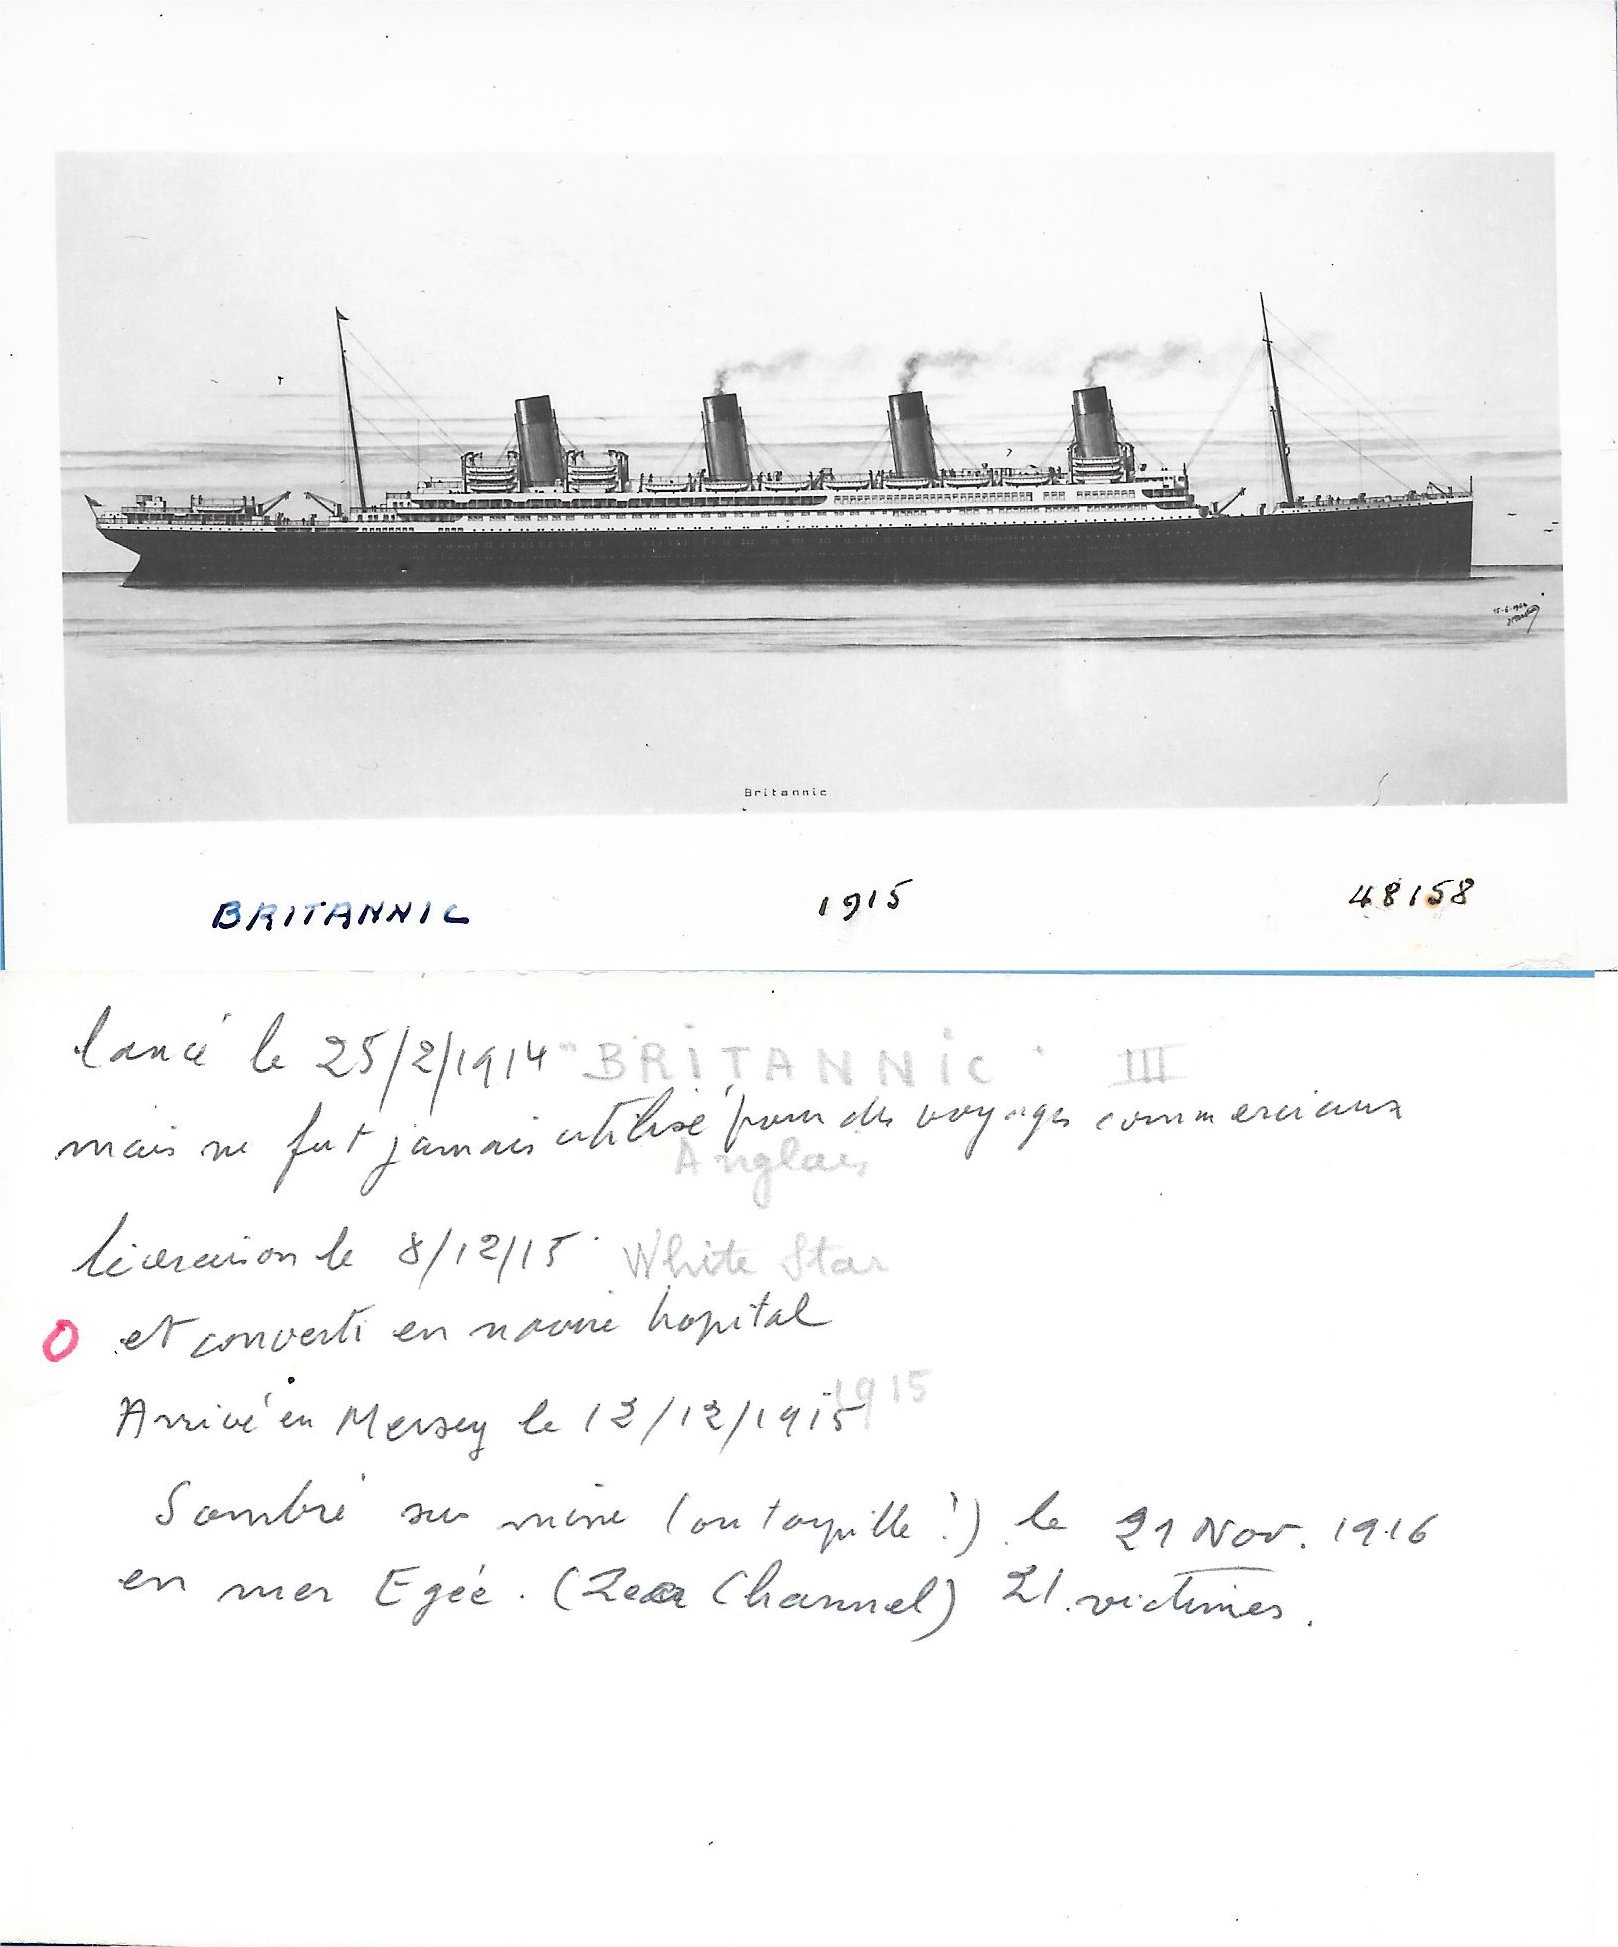 15-6-19
Britannic
BRITANNIC 1915 48158
lancé le 25/2/1914 "BRITANNIC" III
mais ne fut jamais utilisé pour des voyages commerciaux
Anglais
livraison le 8/12/15 White Star
O et converti en navire hopital
1915
Arrivé en Mersey le 12/12/1915
Sombré sur mine (ou torpille ?) le 21 Nov. 1916
en mer Egée. (Zea Channel) 21 victimes.